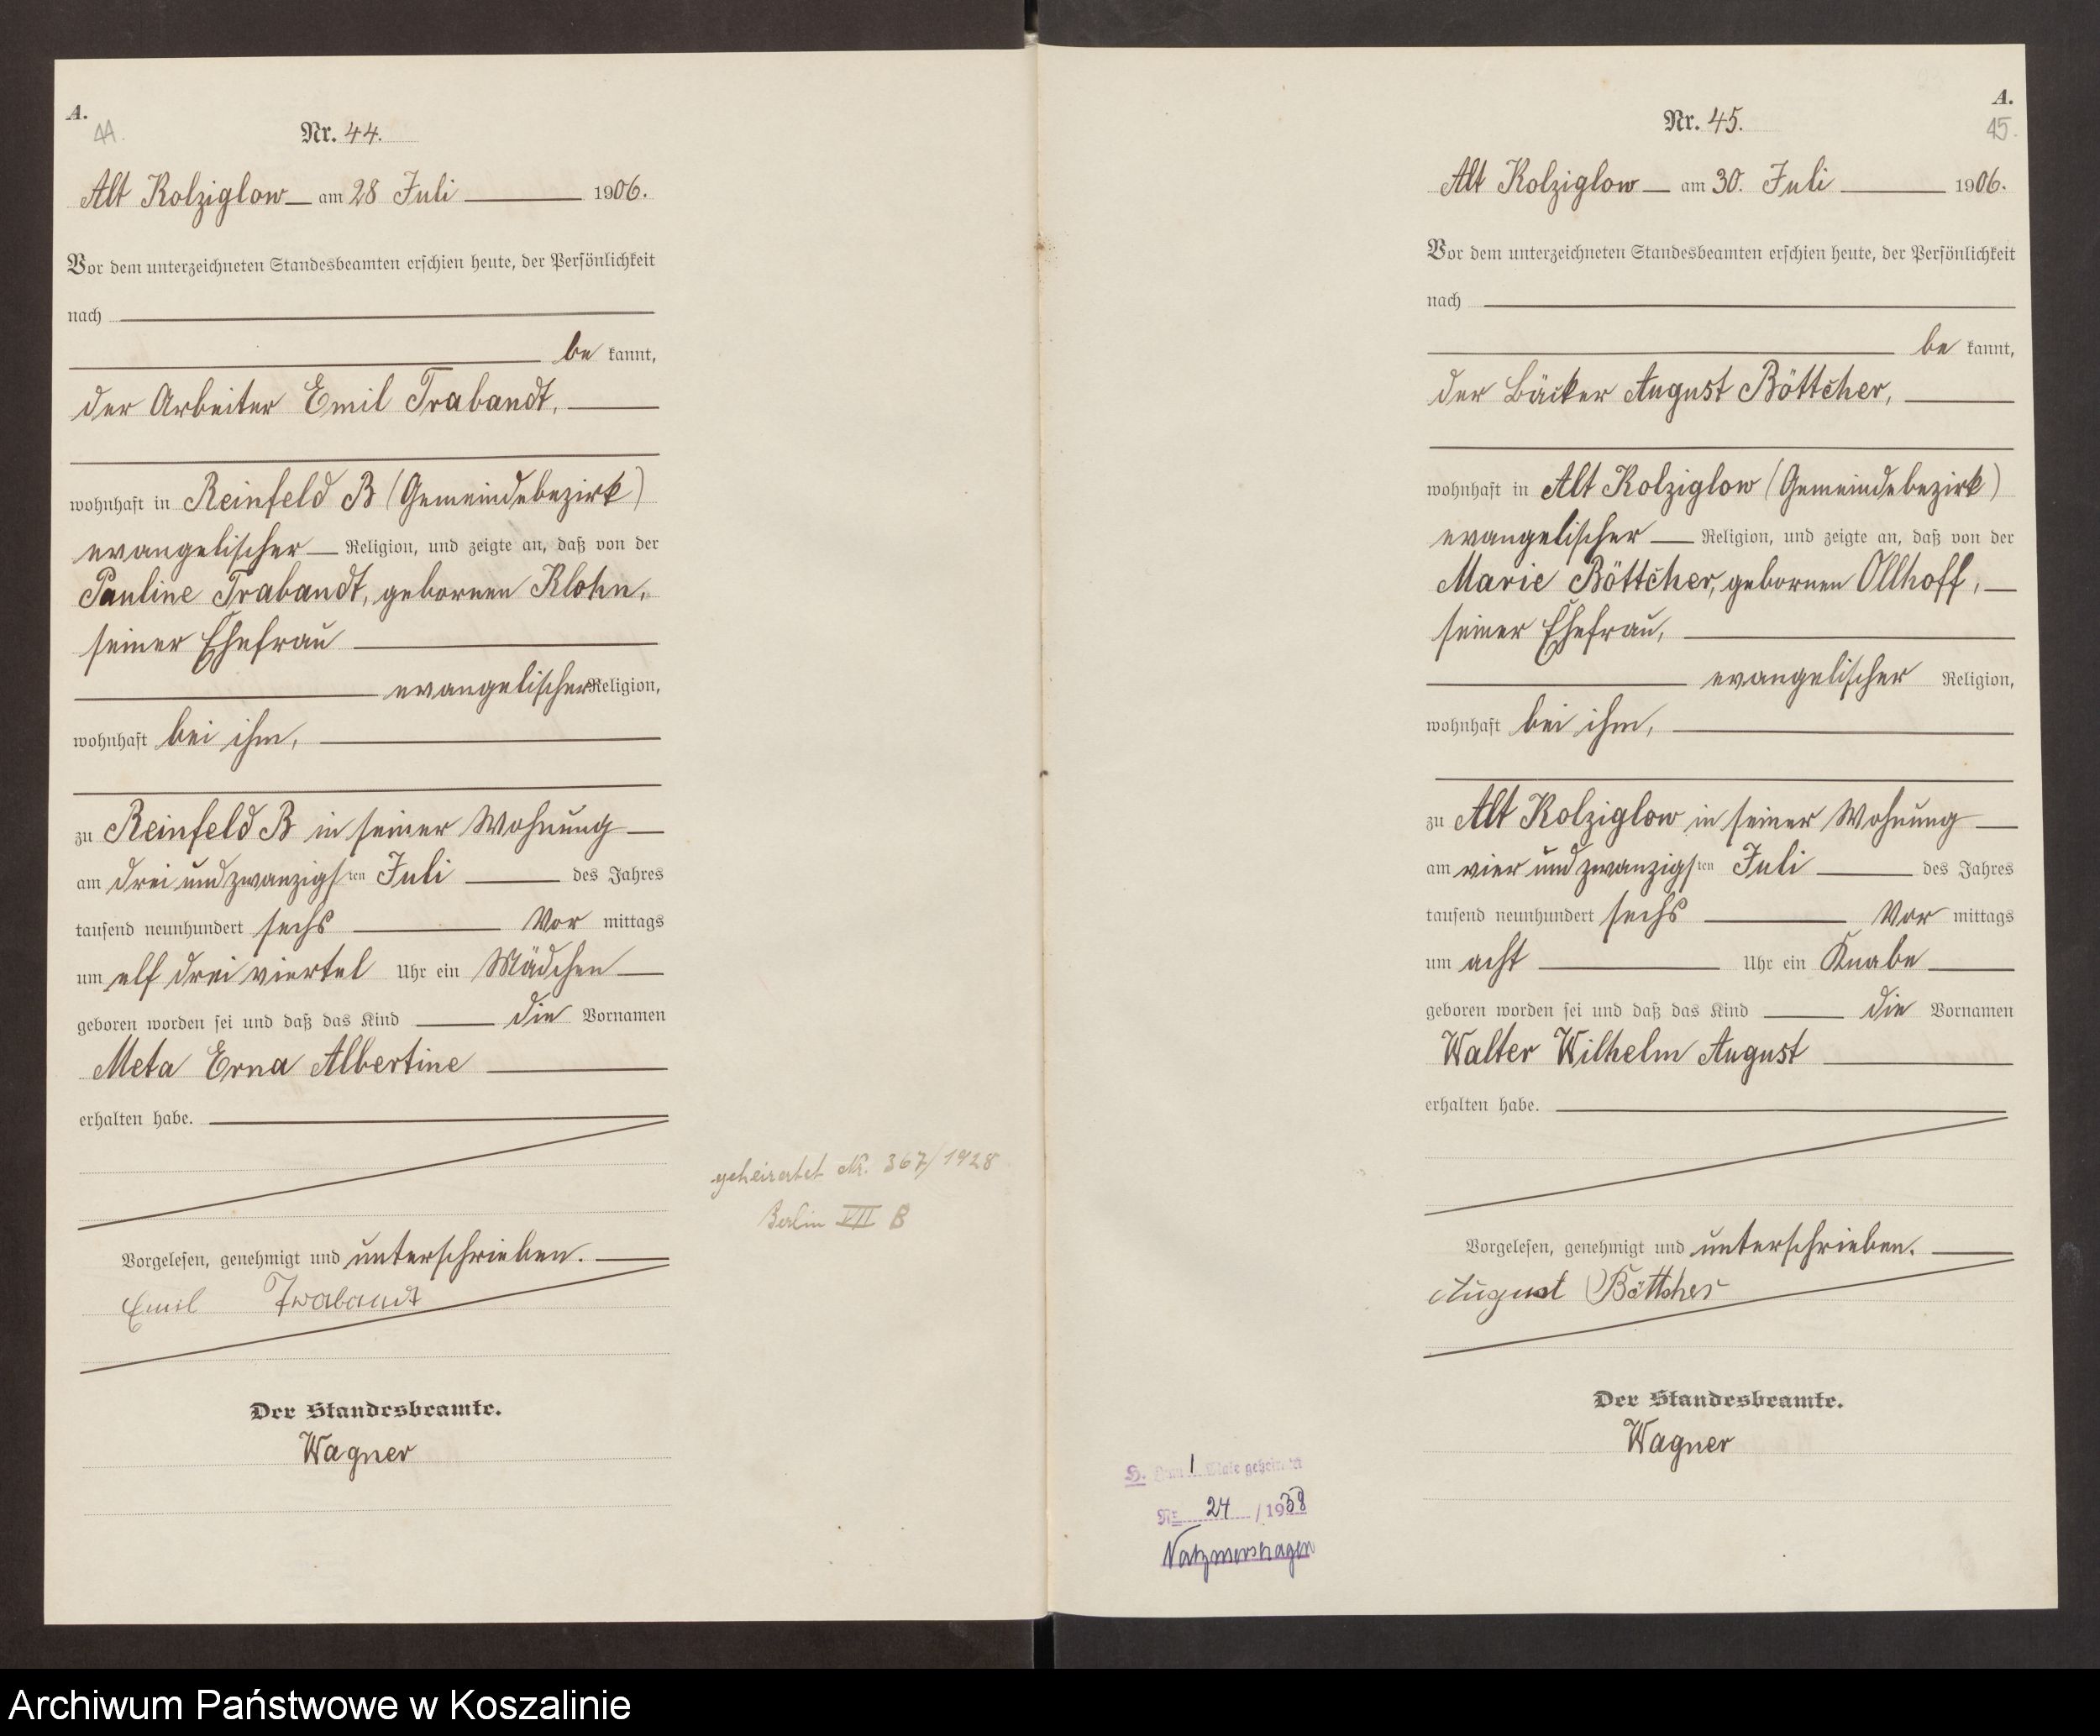 A.
44.
Nr. 44.
Alt Kolziglow am 28 Juli 1906.
Vor dem unterzeichneten Standesbeamten erschien heute, der Persönlichkeit
nach
be kannt,
der Arbeiter Emil Trabandt,
wohnhaft in Reinfeld B (Gemeindebezirk)
evangelischer Religion, und zeigte an, daß von der
Pauline Trabandt, gebornen Klohn,
seiner Ehefrau
evangelischer Religion,
wohnhaft bei ihm,
zu Reinfeld B in seiner Wohnung
am drei und zwanzigsten Juli des Jahres
tausend neunhundert sechs Vor mittags
um elf drei viertel Uhr ein Mädchen
geboren worden sei und daß das Kind die Vornamen
Meta Erna Albertine
erhalten habe.
Vorgelesen, genehmigt und unterschrieben.
Emil Trabandt
Der Standesbeamte.
Wagner
geheiratet Nr. 367/1928
Berlin VII B
A.
45.
Nr. 45.
Alt Kolziglow am 30. Juli 1906.
Vor dem unterzeichneten Standesbeamten erschien heute, der Persönlichkeit
nach
be kannt,
der Bäcker August Böttcher,
wohnhaft in Alt Kolziglow (Gemeindebezirk)
evangelischer Religion, und zeigte an, daß von der
Marie Böttcher, gebornen Ollhoff,
seiner Ehefrau,
evangelischer Religion,
wohnhaft bei ihm,
zu Alt Kolziglow in seiner Wohnung
am vier und zwanzigsten Juli des Jahres
tausend neunhundert sechs Vor mittags
um acht Uhr ein Knabe
geboren worden sei und daß das Kind die Vornamen
Walter Wilhelm August
erhalten habe.
Vorgelesen, genehmigt und unterschrieben.
August Böttcher
Der Standesbeamte.
Wagner
H. 1
Nr. 24 / 1938
Natzmershagen
Archiwum Państwowe w Koszalinie